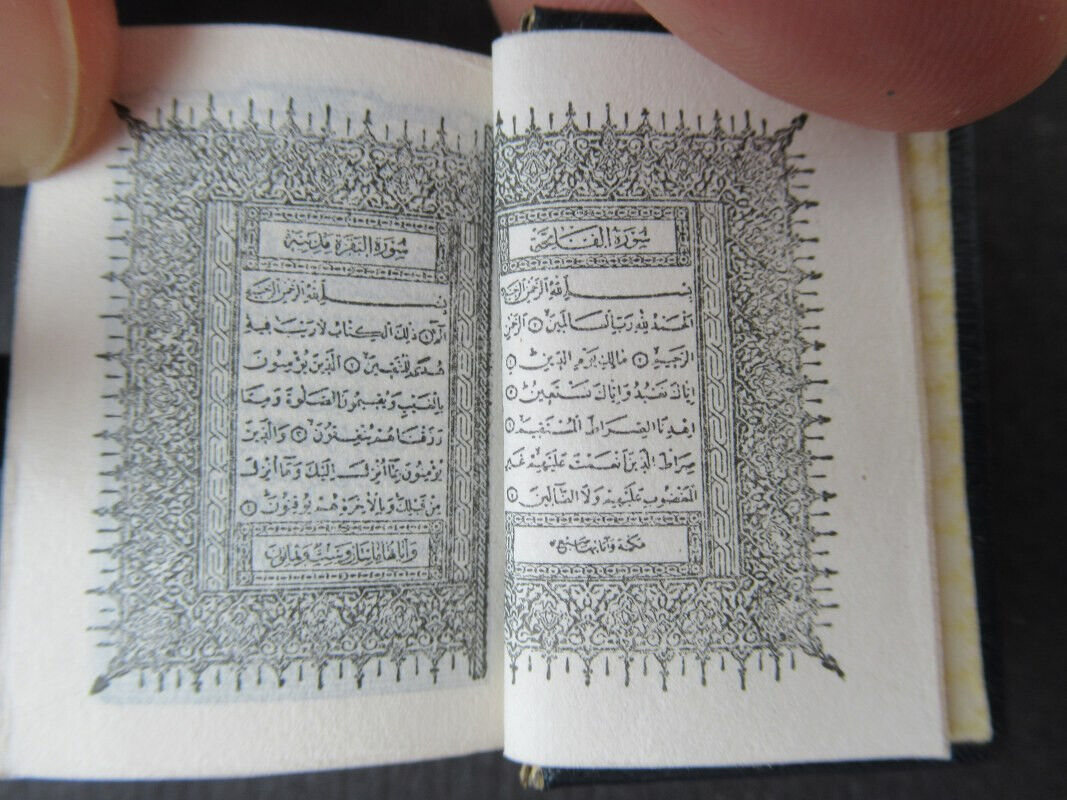 سورة الفاتحة
بسم الله الرحمن الرحيم
الحمد لله رب العالمين ۝ الرحمن
الرحيم ۝ مالك يوم الدين ۝
اياك نعبد واياك نستعين ۝
اهدنا الصراط المستقيم ۝
صراط الذين انعمت عليهم غير
المغضوب عليهم ولا الضالين ۝
مكية وآياتها سبع
سورة البقرة مدنية
بسم الله الرحمن الرحيم
الم ۝ ذلك الكتاب لا ريب فيه
هدى للمتقين ۝ الذين يؤمنون
بالغيب ويقيمون الصلوة ومما
رزقناهم ينفقون ۝ والذين
يؤمنون بما انزل اليك وما انزل
من قبلك وبالاخرة هم يوقنون ۝
وآياتها مائتان وست وثمانون